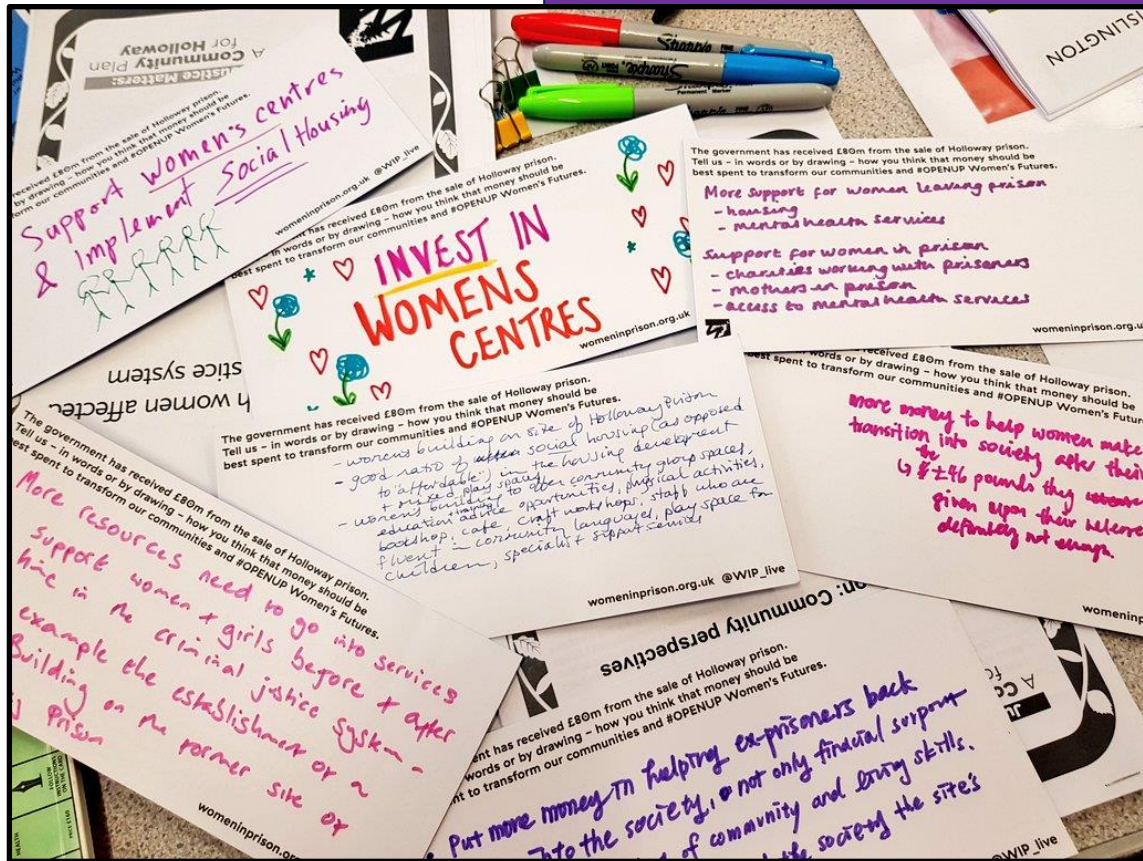 A
Community Plan
for Holloway
Justice Matters:
received £80m from the sale of Holloway prison.
by drawing – how you think that money should be
form our communities and #OPENUP Women's Futures.
Support women's centres
& Implement Social Housing
womeninprison.org.uk @WIP_live
Sharpie
Sharpie. Fine
Permanent Marker
ISLINGTON
ent has received £80m from the sale of Holloway prison.
in words or by drawing – how you think that money should be
best spent to transform our communities and #OPENUP Women's Futures.
INVEST IN
WOMENS
CENTRES
womeninprison.org.uk
The government has received £80m from the sale of Holloway prison.
Tell us – in words or by drawing – how you think that money should be
best spent to transform our communities and #OPENUP Women's Futures.
More support for women leaving prison
- housing
- mental health services
Support for women in prison
- charities working with prisoners
- mothers in prison
- access to mental health services
womeninprison.org.u
stice system
h women affected
The government has received £80m from the sale of Holloway prison.
Tell us – in words or by drawing – how you think that money should be
best spent to transform our communities and #OPENUP Women's Futures.
- womens building on site of Holloway Prison
- good ratio of social housing (as opposed
to "affordable") in the housing development
+ mixed play spaces
- womens building to offer community group spaces,
education + training advice opportunities, physical activities,
bookshop, cafe, craft workshops, staff who are
fluent in community languages, play space for
children, specialist support services
womeninprison.org.uk @WIP_live
received £80m from the sale of Holloway prison.
words or by drawing – how you think that money should be
best spent to transform our communities and #OPENUP Women's Futu
more money to help women make
transition into society after their
the £46 pounds they
given upon their release
definitely not enough.
womeninp
The government has received £80m from the sale of Holloway prison.
Tell us – in words or by drawing – how you think that money should be
best spent to transform our communities and #OPENUP Women's Futures.
More resources need to go into services
support women + girls before + after
time in the criminal justice system -
example the establishment of a
Building on the former site of
prison
womeninprison.or
on: Community perspectives
ent has received £80m from the sale of Holloway prison.
words or by drawing – how you think that money should be
nt to transform our communities and #OPENUP Women's Futures.
Put more money in helping ex-prisoners back
into the society, not only financial support
of community and living skills.
the society the site's
@WIP_live
A
CO
fo
FOLLOW
INSTRUCTIONS
ON THE CARD
HEALTH